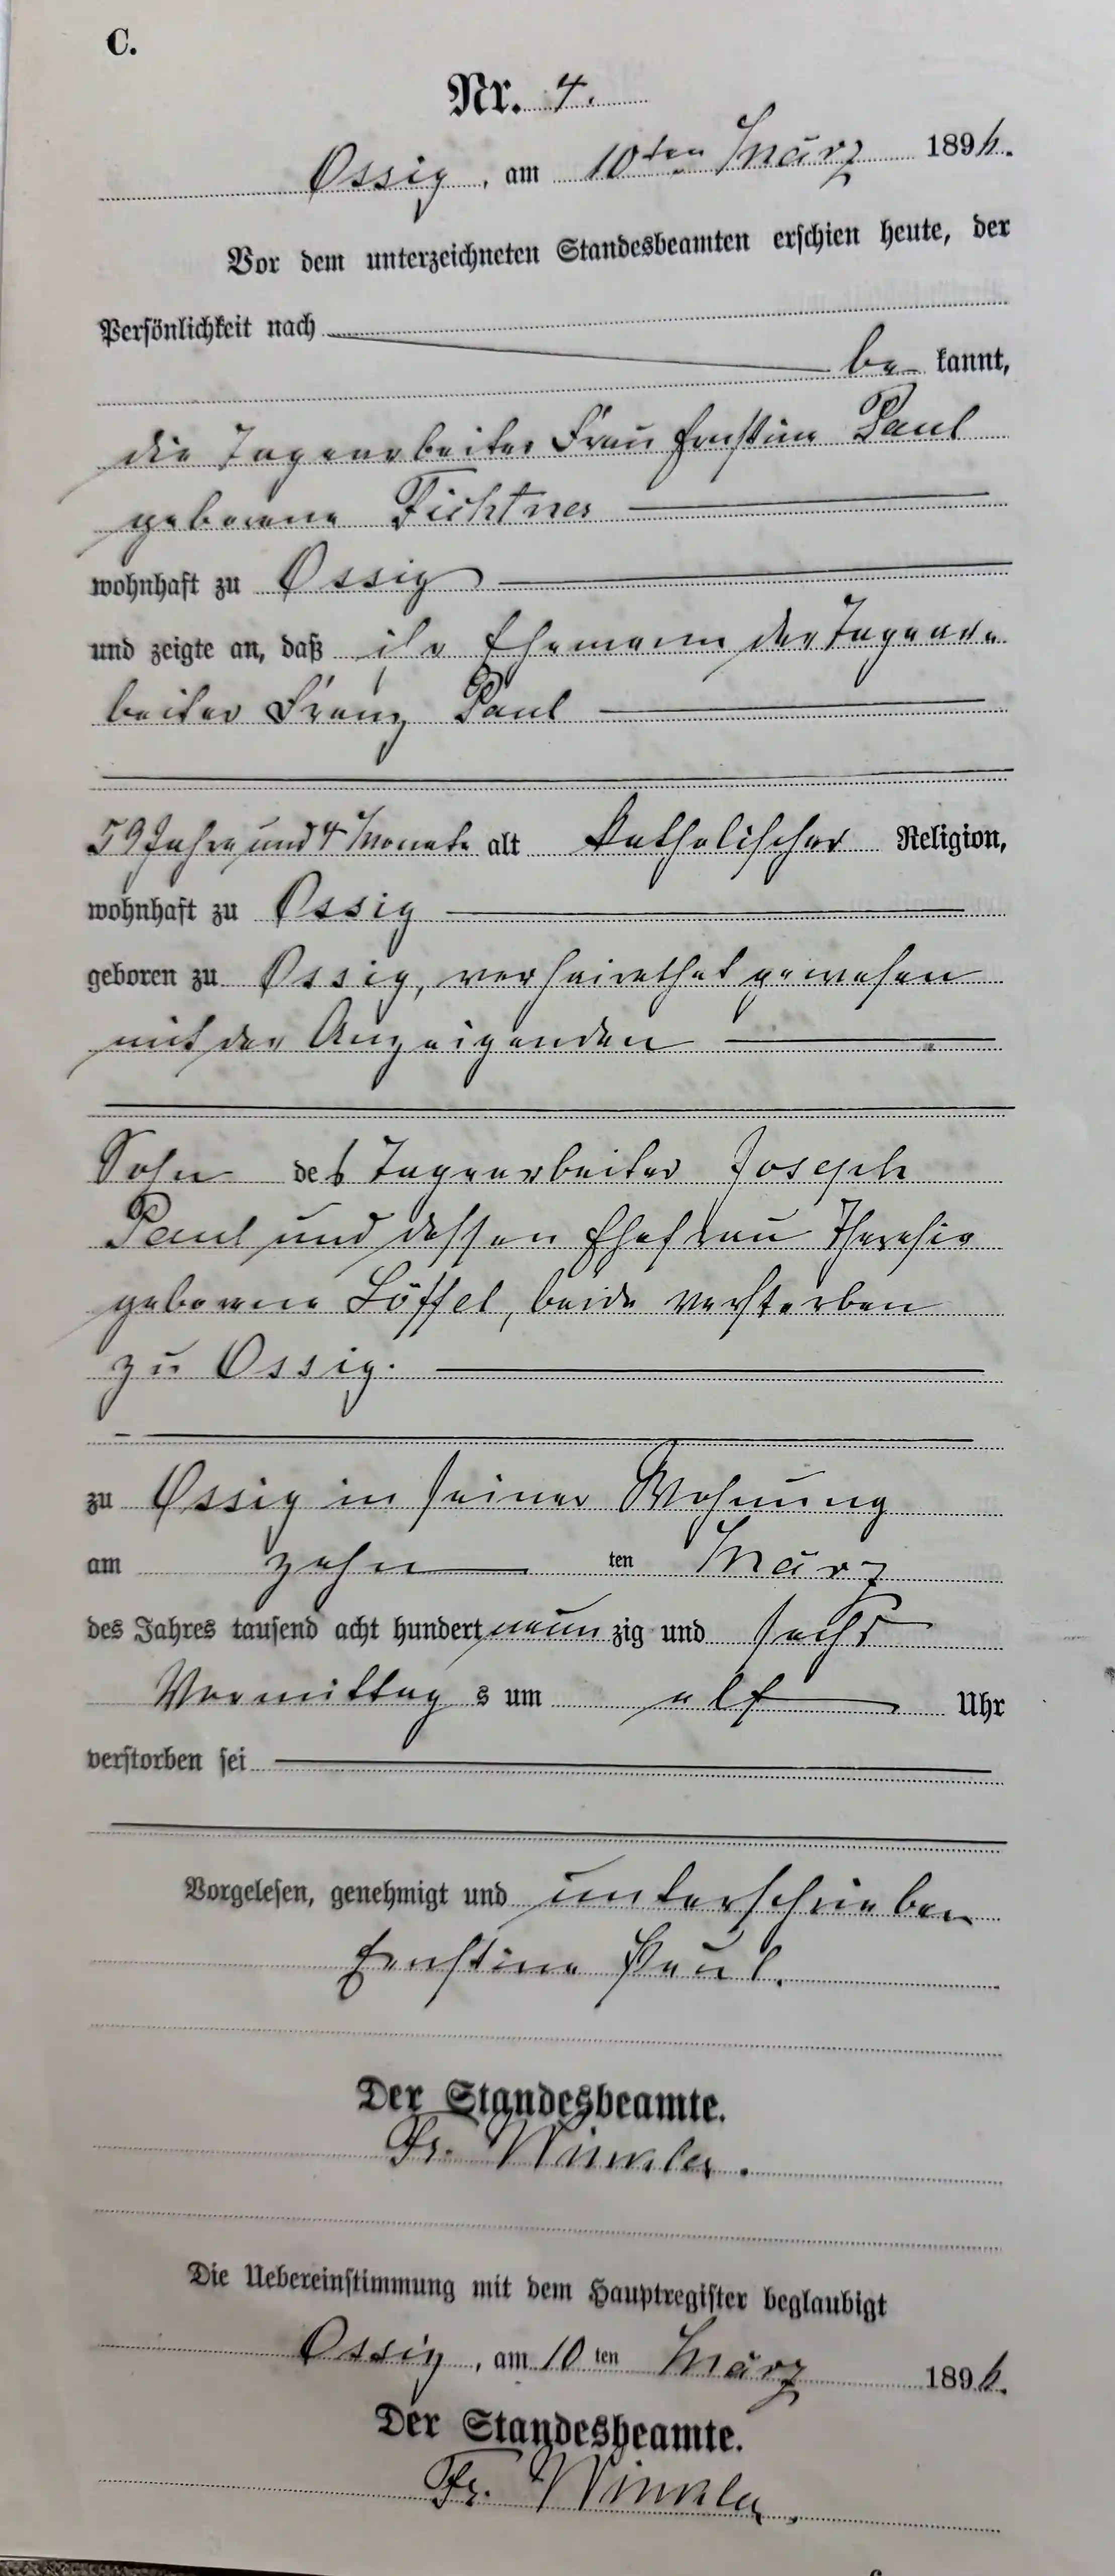 C.
Nr. 4.
Ossig, am 10ten März 1896.
Vor dem unterzeichneten Standesbeamten erschien heute, der
Persönlichkeit nach
be kannt,
die Tagearbeiter Frau Ernstine Paul
geborene Fichtner
wohnhaft zu Ossig
und zeigte an, daß ihr Ehemann der Tagear-
beiter Franz Paul
59 Jahre und 4 Monate alt katholischer Religion,
wohnhaft zu Ossig
geboren zu Ossig, verheirathet gewesen
mit der Anzeigenden
Sohn des Tagearbeiter Joseph
Paul und dessen Ehefrau Theresia
geborene Löffel, beide verstorben
zu Ossig.
zu Ossig in seiner Wohnung
am zehn ten März
des Jahres tausend acht hundert neun zig und sechs
Vormittag s um elf Uhr
verstorben sei
Vorgelesen, genehmigt und unterschrieben
Ernstine Paul.
Der Standesbeamte.
Fr. Winkler.
Die Uebereinstimmung mit dem Hauptregister beglaubigt
Ossig, am 10 ten März 1896.
Der Standesbeamte.
Fr. Winkler.